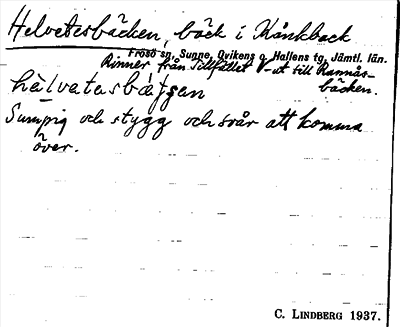 Helvetesbäcken, bäck i Kånkback
Frösö sn, Sunne, Ovikens o. Hallens tg, Jämtl. län.
Rinner från Tillfället V-ut till Rannås-
bäcken.
hèlvatasbä́tʃan
Sumpig och stygg och svår att komma
över.
C. LINDBERG 1937.